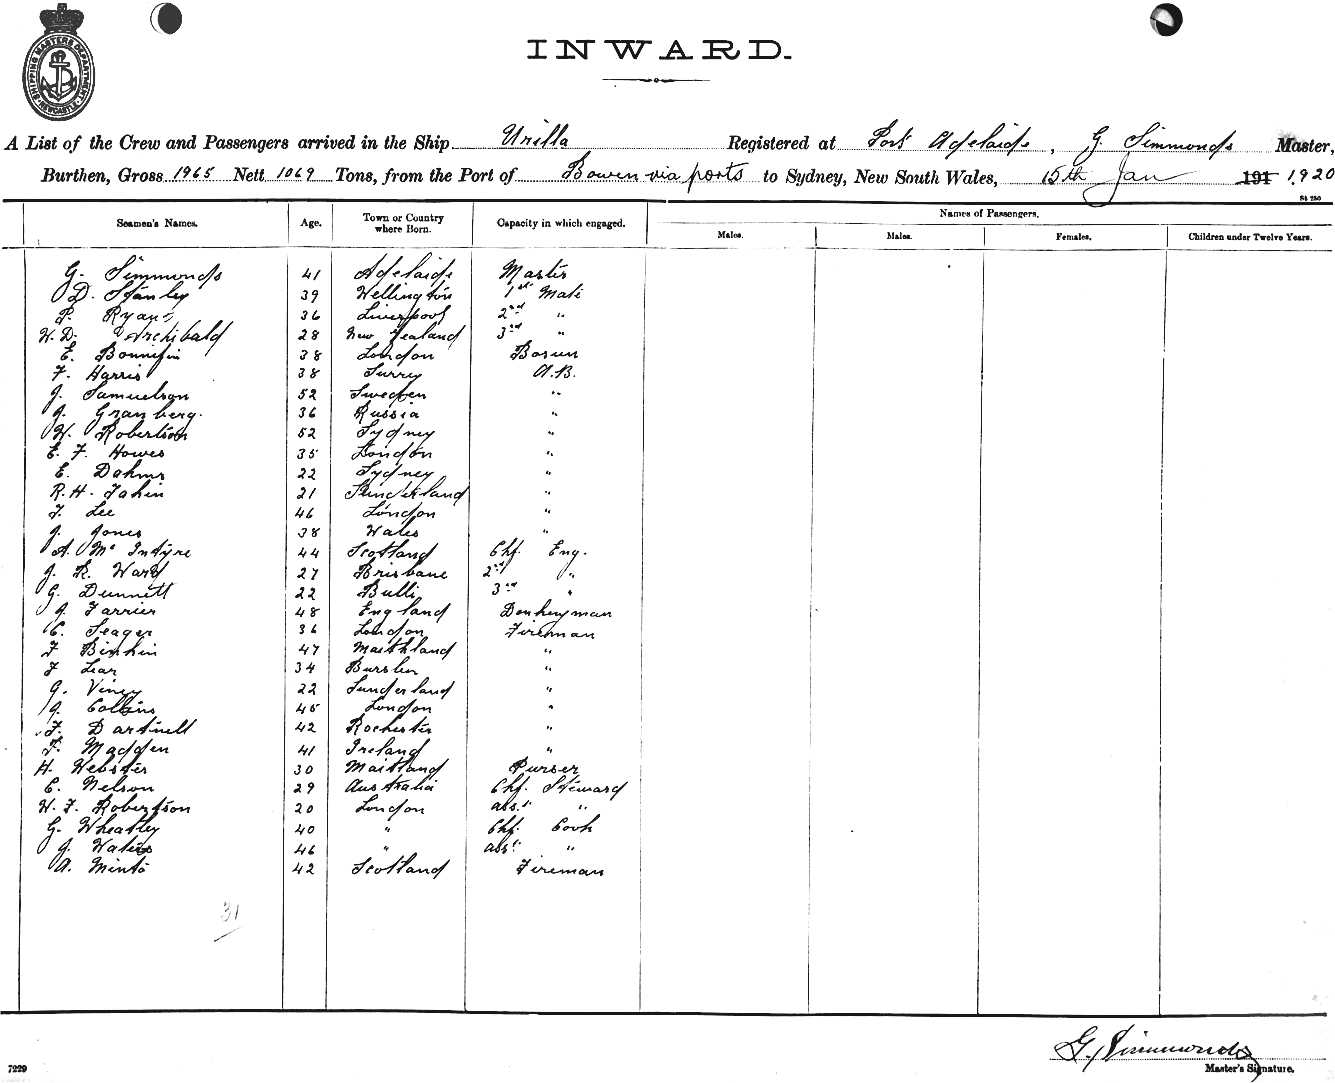 SHIPPING MASTERS DEPARTMENT NEWCASTLE
INWARD.
A List of the Crew and Passengers arrived in the Ship Urilla Registered at Port Adelaide, G. Simmonds Master,
Burthen, Gross 1965 Nett 1069 Tons, from the Port of Bowen via ports to Sydney, New South Wales, 15th Jan 191 1920
Seamen's Names. Age. Town or Country where Born. Capacity in which engaged. Names of Passengers.
Males. Males. Females. Children under Twelve Years.
G. Simmonds 41 Adelaide Master
D. Stanley 39 Wellington 1st Mate
P. Ryan 36 Liverpool 2nd "
W. D. Archibald 28 New Zealand 3rd "
E. 38 London Bosun
F. Harris 38 Surrey A.B.
J. Samuelson 52 Sweden "
J. Granberg. 36 Russia "
W. Robertson 52 Sydney "
E. F. Howes 35 London "
E. Dahms 22 Sydney "
R. H. 21 Sunderland "
F. Lee 46 London "
J. Jones 38 Wales "
A. Mc Intyre 44 Scotland Chf. Eng.
J. R. Ward 27 Brisbane 2nd "
G. Dunnett 22 Bulli 3rd "
J. Farrier 48 England Donkeyman
C. Seager 36 London Fireman
F 47 Maithland "
F Lear 34 Burslem "
G. Viney 22 Sunderland "
J. Collins 45 London "
F. Dartnell 42 Rochester "
F. Madden 41 Ireland "
H. Webster 30 Maitland Purser
C. Nelson 29 Australia Chf. Steward
W. F. Robertson 20 London ass.t "
G. Wheatley 40 " Chf. Cook
J. Waters 46 " ass.t "
A. Minto 42 Scotland Fireman
31
G. Simmonds
7229 Master's Signature.